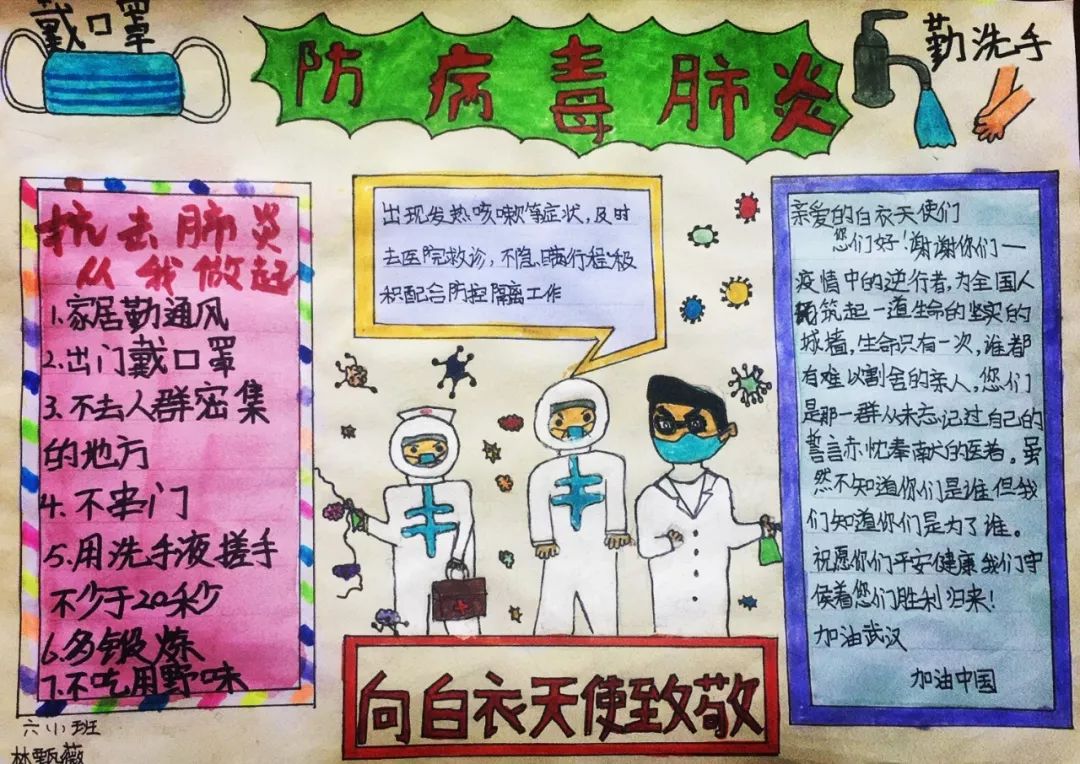 戴口罩
防病毒肺炎
勤洗手
抗去肺炎
从我做起
1.家居勤通风
2.出门戴口罩
3.不去人群密集
的地方
4.不串门
5.用洗手液搓手
不少于20秒
6.多锻炼
7.不吃用野味
六小班
林甄薇
出现发热咳嗽等症状,及时
去医院救诊,不隐瞒行程积
积配合防控隔离工作
向白衣天使致敬
亲爱的白衣天使们
您们好!谢谢你们一
疫情中的逆行者,为全国人
筑起一道生命的坚实的
城墙,生命只有一次,谁都
有难以割舍的亲人,您们
是那一群从未忘记过自己的
誓言赤忱奉献的医者。虽
然不知道你们是谁但我
们知道你们是为了谁。
祝愿你们平安健康我们守
侯着您们胜利归来!
加油武汉
加油中国